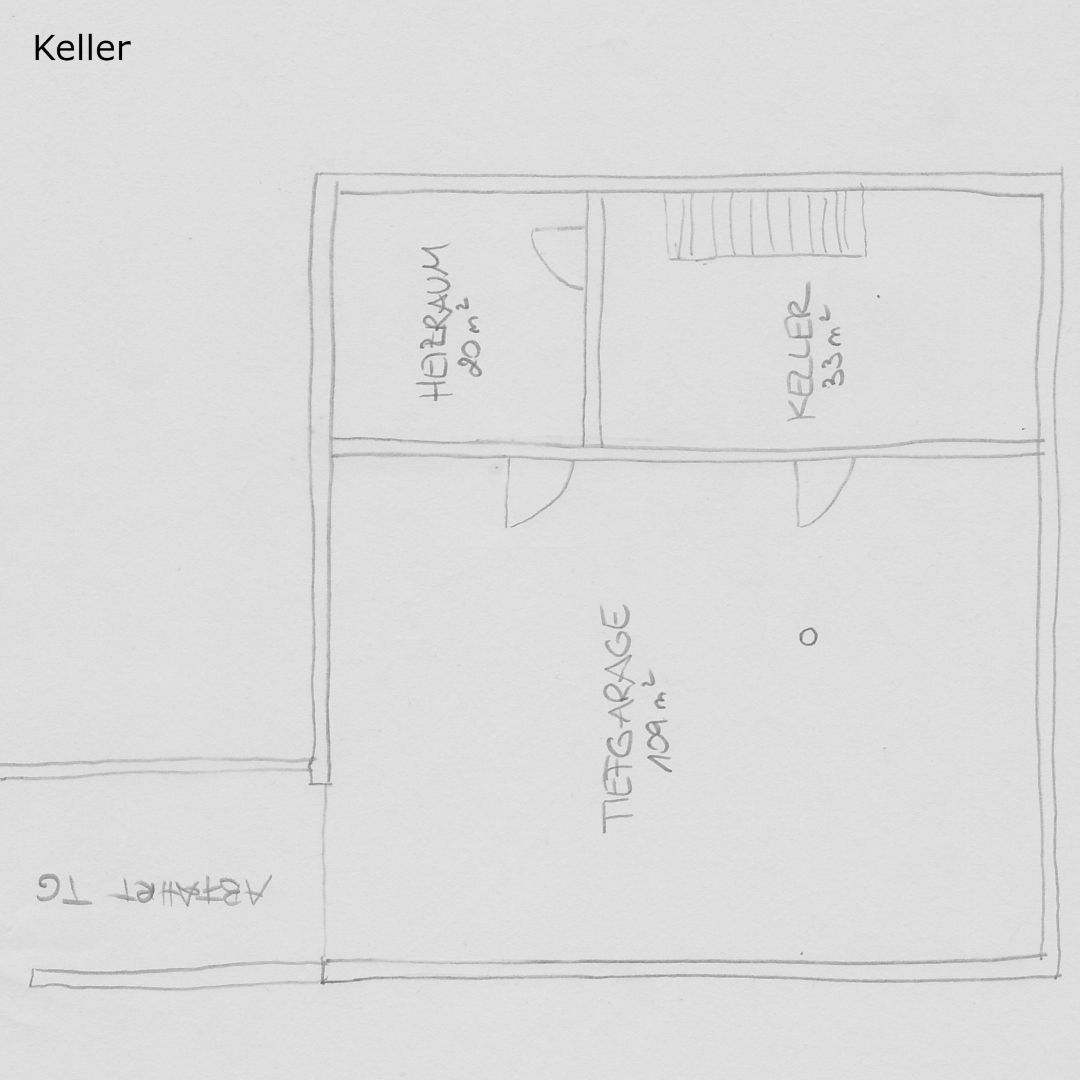 Keller
HEIZRAUM
20 m²
KELLER
33 m²
TIEFGARAGE
109 m²
ABFAHRT TG